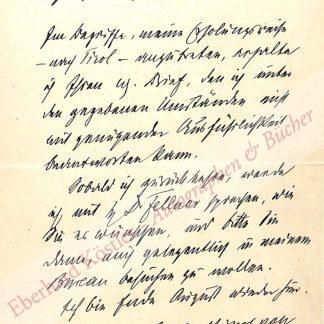 Im Begriffe, meine Erholungsreise
– nach Tirol – anzutreten, erhalte
ich Ihren Brief, den ich unter
den gegebenen Umständen nicht
mit genügender Ausführlichkeit
beantworten kann.
Sobald ich zurückkehre, werde
ich mit Dr Fellner sprechen, wie
Sie es wünschen, und bitte Sie
dann mich gelegentlich in meinem
Bureau besuchen zu wollen.
Ich bin Ende August wieder hier.
Eberhard Köstler Autographen & Bücher